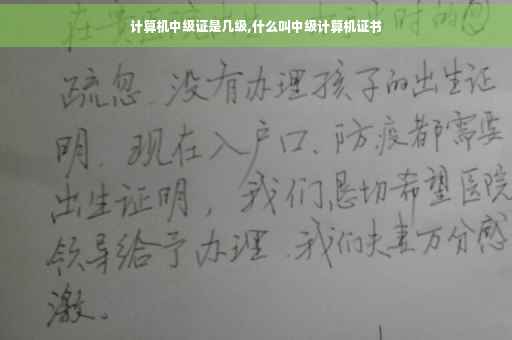 计算机中级证是几级,什么叫中级计算机证书
时的
疏忽、没有办理孩子的出生证
明、现在入户口、防疫都需要
出生证明，我们恳切希望医院
领导给予办理、我们夫妻万分感
激。